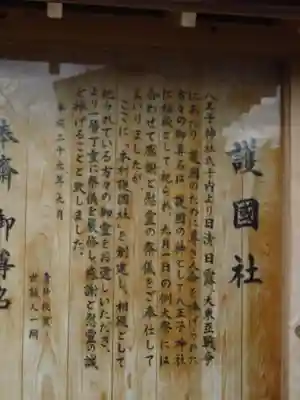 護國社
八王子神社氏子内より日清、日露、大東亜戦争
にあたり、護国のために尊き人命を捧げられた
方々の御尊名は、護国の神として八王子神社
に相殿として祀られ、九月一日の例大祭には
合わせて感謝と慰霊の祭儀をご奉仕して
まいりましたが、
ここに、本村護国社を創建し、相殿として
祀られている方々の御霊をお遷しいただき、
より一層丁重に祭儀を厳修し、感謝と慰霊の誠
を捧げることと致しました。
平成二十六年九月
世話人一同
奉齋 御尊名